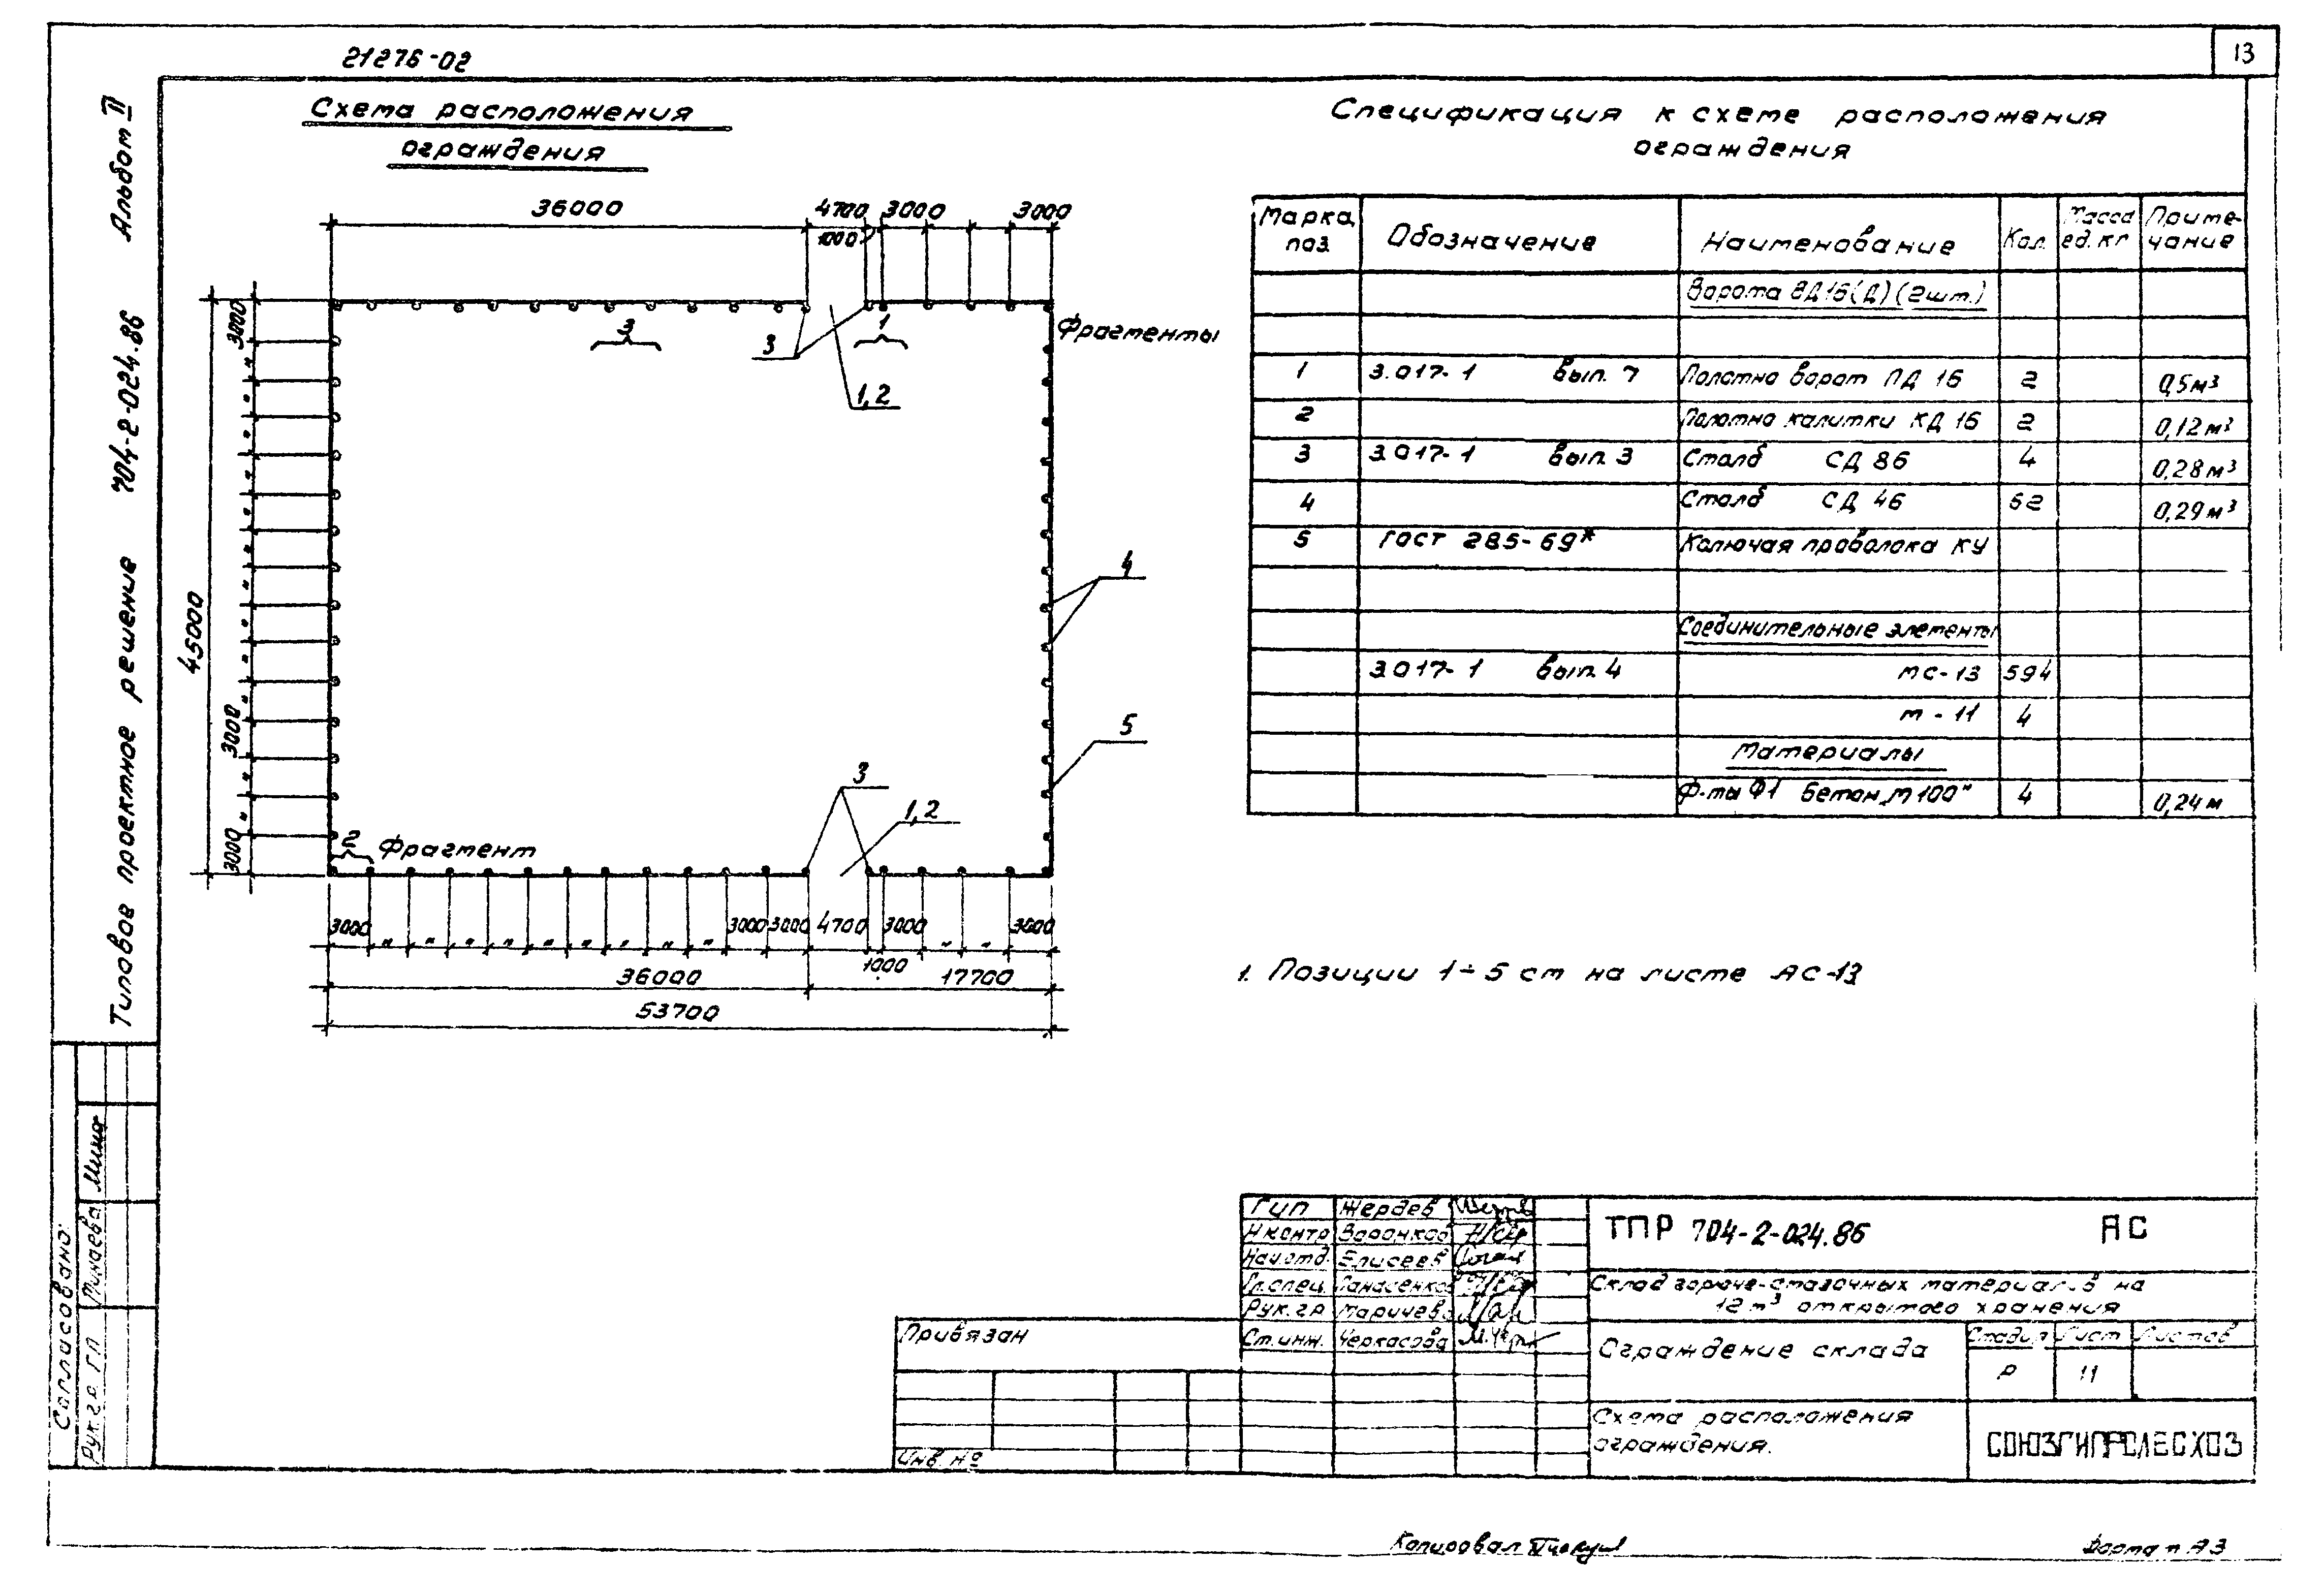 13
21276-02
Схема расположения
ограждения
Спецификация к схеме расположения
ограждения
Альбом II
704-2-024.86
Типовое проектное решение
36000
4700
1000
3000
3000
3000
"
"
"
"
"
"
"
"
"
3000
"
"
3000
45000
3
3
1
1,2
Фрагменты
4
5
3
1,2
2
Фрагмент
3000 " " " " " " " " " 3000 3000 4700 3000 " " 3000
1000
36000 17700
53700
Марка, поз. Обозначение Наименование Кол. Масса ед. кг Приме-чание
Ворота ВД16(Д)(2шт.)
1 3.017-1 вып. 7 Полотно ворот ПД 16 2 0,5м³
2 Полотно калитки КД 16 2 0,12м³
3 3.017-1 вып. 3 Столб СД 86 4 0,28м³
4 Столб СД 46 52 0,29м³
5 Гост 285-69* Колючая проволока КУ
Соединительные элементы
3.017-1 вып. 4 МС-13 594
М-11 4
Материалы
Ф-ты Ф1 Бетон „М100" 4 0,24м
1. Позиции 1÷5 см на листе АС-13
Согласовано:
Рук. гр. ГП Минаева
Гип Жердев
Н.контр Воронков
Нач.отд. Елисеев
Гл.спец. Панасенков
Рук.гр Маричева
Ст.инж. Черкасова
Привязан
Инв. №
ТПР 704-2-024.86 АС
Склад горюче-смазочных материалов на
12 м³ открытого хранения
Ограждение склада
Стадия Лист Листов
Р 11
Схема расположения
ограждения.
СОЮЗГИПРОЛЕСХОЗ
Копировал
Формат А3